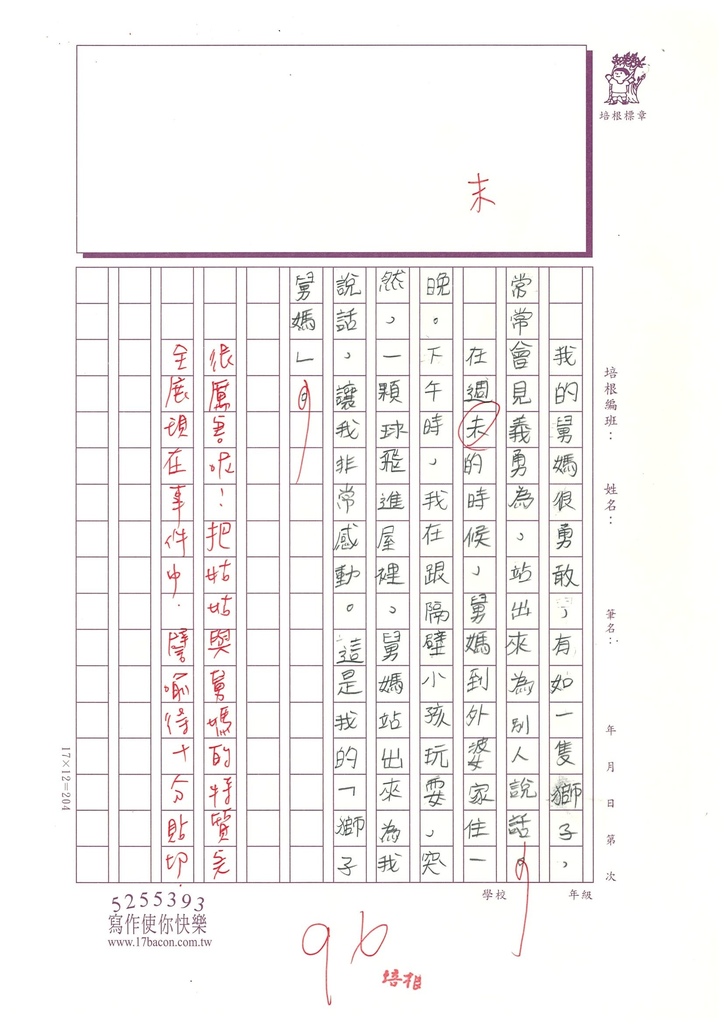 末
培根標章
培根編班：
姓名：
筆名：
年 月 日 第 次
我的舅媽很勇敢，有如一隻獅子，
常常會見義勇為，站出來為別人說話。
在週末的時候，舅媽到外婆家住一
晚。下午時，我在跟隔壁小孩玩耍，突
然，一顆球飛進屋裡，舅媽站出來為我
說話，讓我非常感動。這是我的「獅子
舅媽」。
很厲害呢！把姑姑與舅媽的特質完
全展現在事件中．譬喻得十分貼切．
學校
年級
17×12=204
5255393
寫作使你快樂
www.17bacon.com.tw
96
培根